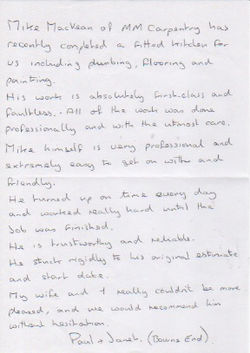 Mike MacKean of MM Carpentry has
recently completed a fitted kitchen for
us including plumbing, flooring and
painting.
His work is absolutely first-class and
faultless. All of the work was done
professionally and with the utmost care.
Mike himself is very professional and
extremely easy to get on with and
friendly.
He turned up on time every day
and worked really hard until the
job was finished.
He is trustworthy and reliable.
He stuck rigidly to his original estimate
and start date.
My wife and I really couldn't be more
pleased, and we would recommend him
without hesitation.
Paul + Janet. (Bourne End)